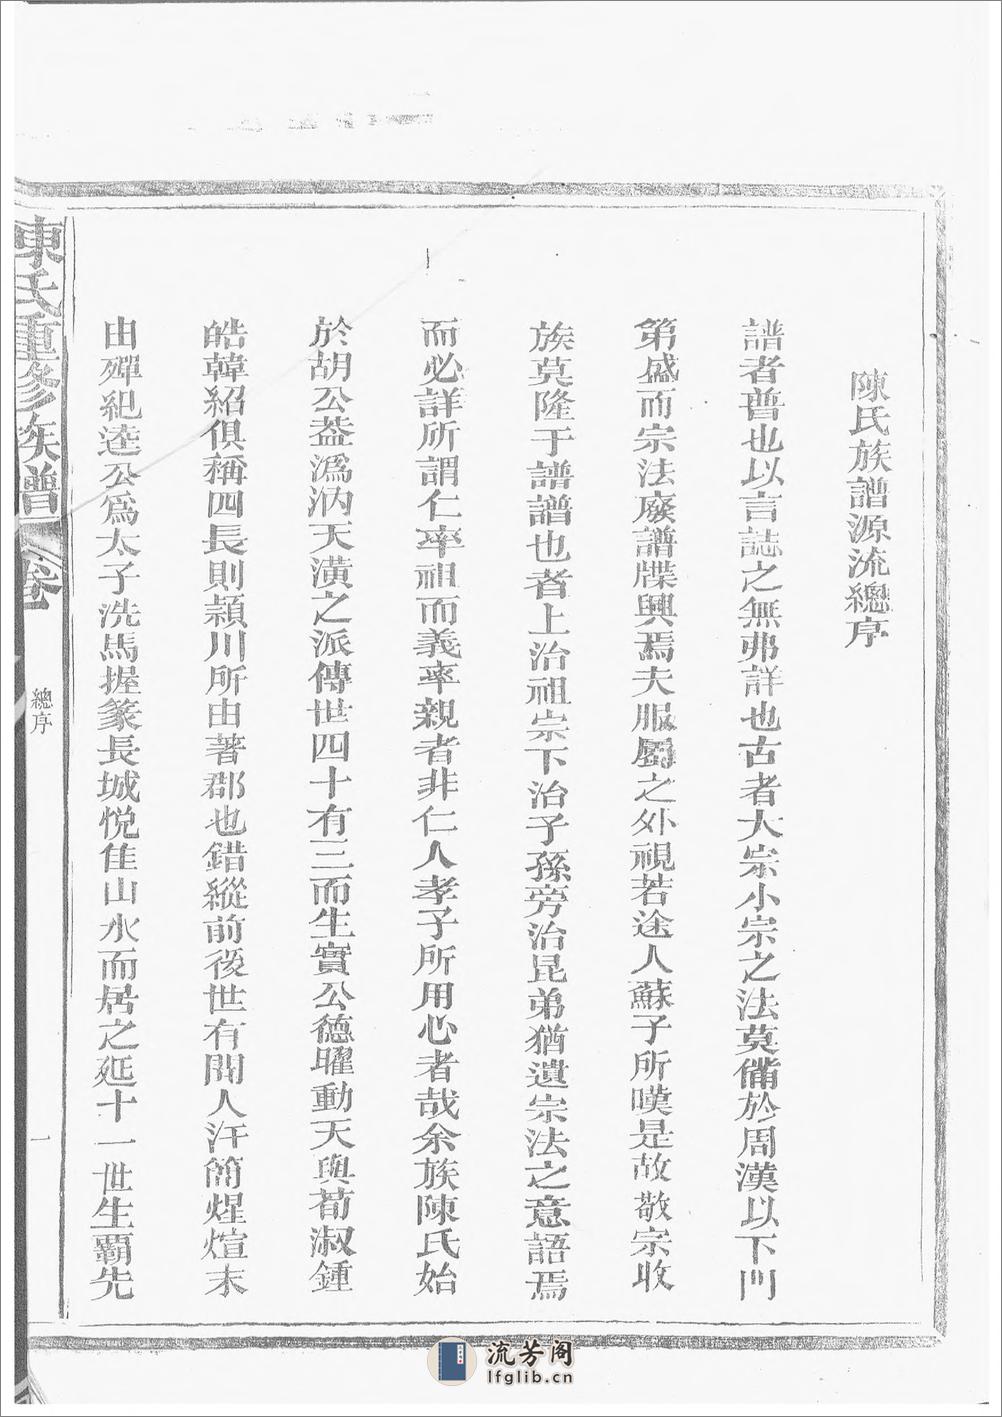 陳氏族譜源流總序
譜者普也以言誌之無弗詳也古者大宗小宗之法莫備於周漢以下門
第盛而宗法廢譜牒興焉夫服屬之外視若途人蘇子所嘆是故敬宗收
族莫隆于譜譜也者上治祖宗下治子孫旁治昆弟猶遺宗法之意語焉
而必詳所謂仁率祖而義率親者非仁人孝子所用心者哉余族陳氏始
於胡公盖溈汭天潢之派傳世四十有三而生實公德曜動天與荀淑鍾
皓韓紹俱稱四長則頴川所由著郡也錯縱前後世有聞人汗簡煋煊末
由殫紀逵公爲太子洗馬握篆長城悅佳山水而居之延十一世生覇先
陳氏重修族譜
卷一
總序
一
流芳阁
lfglib.cn